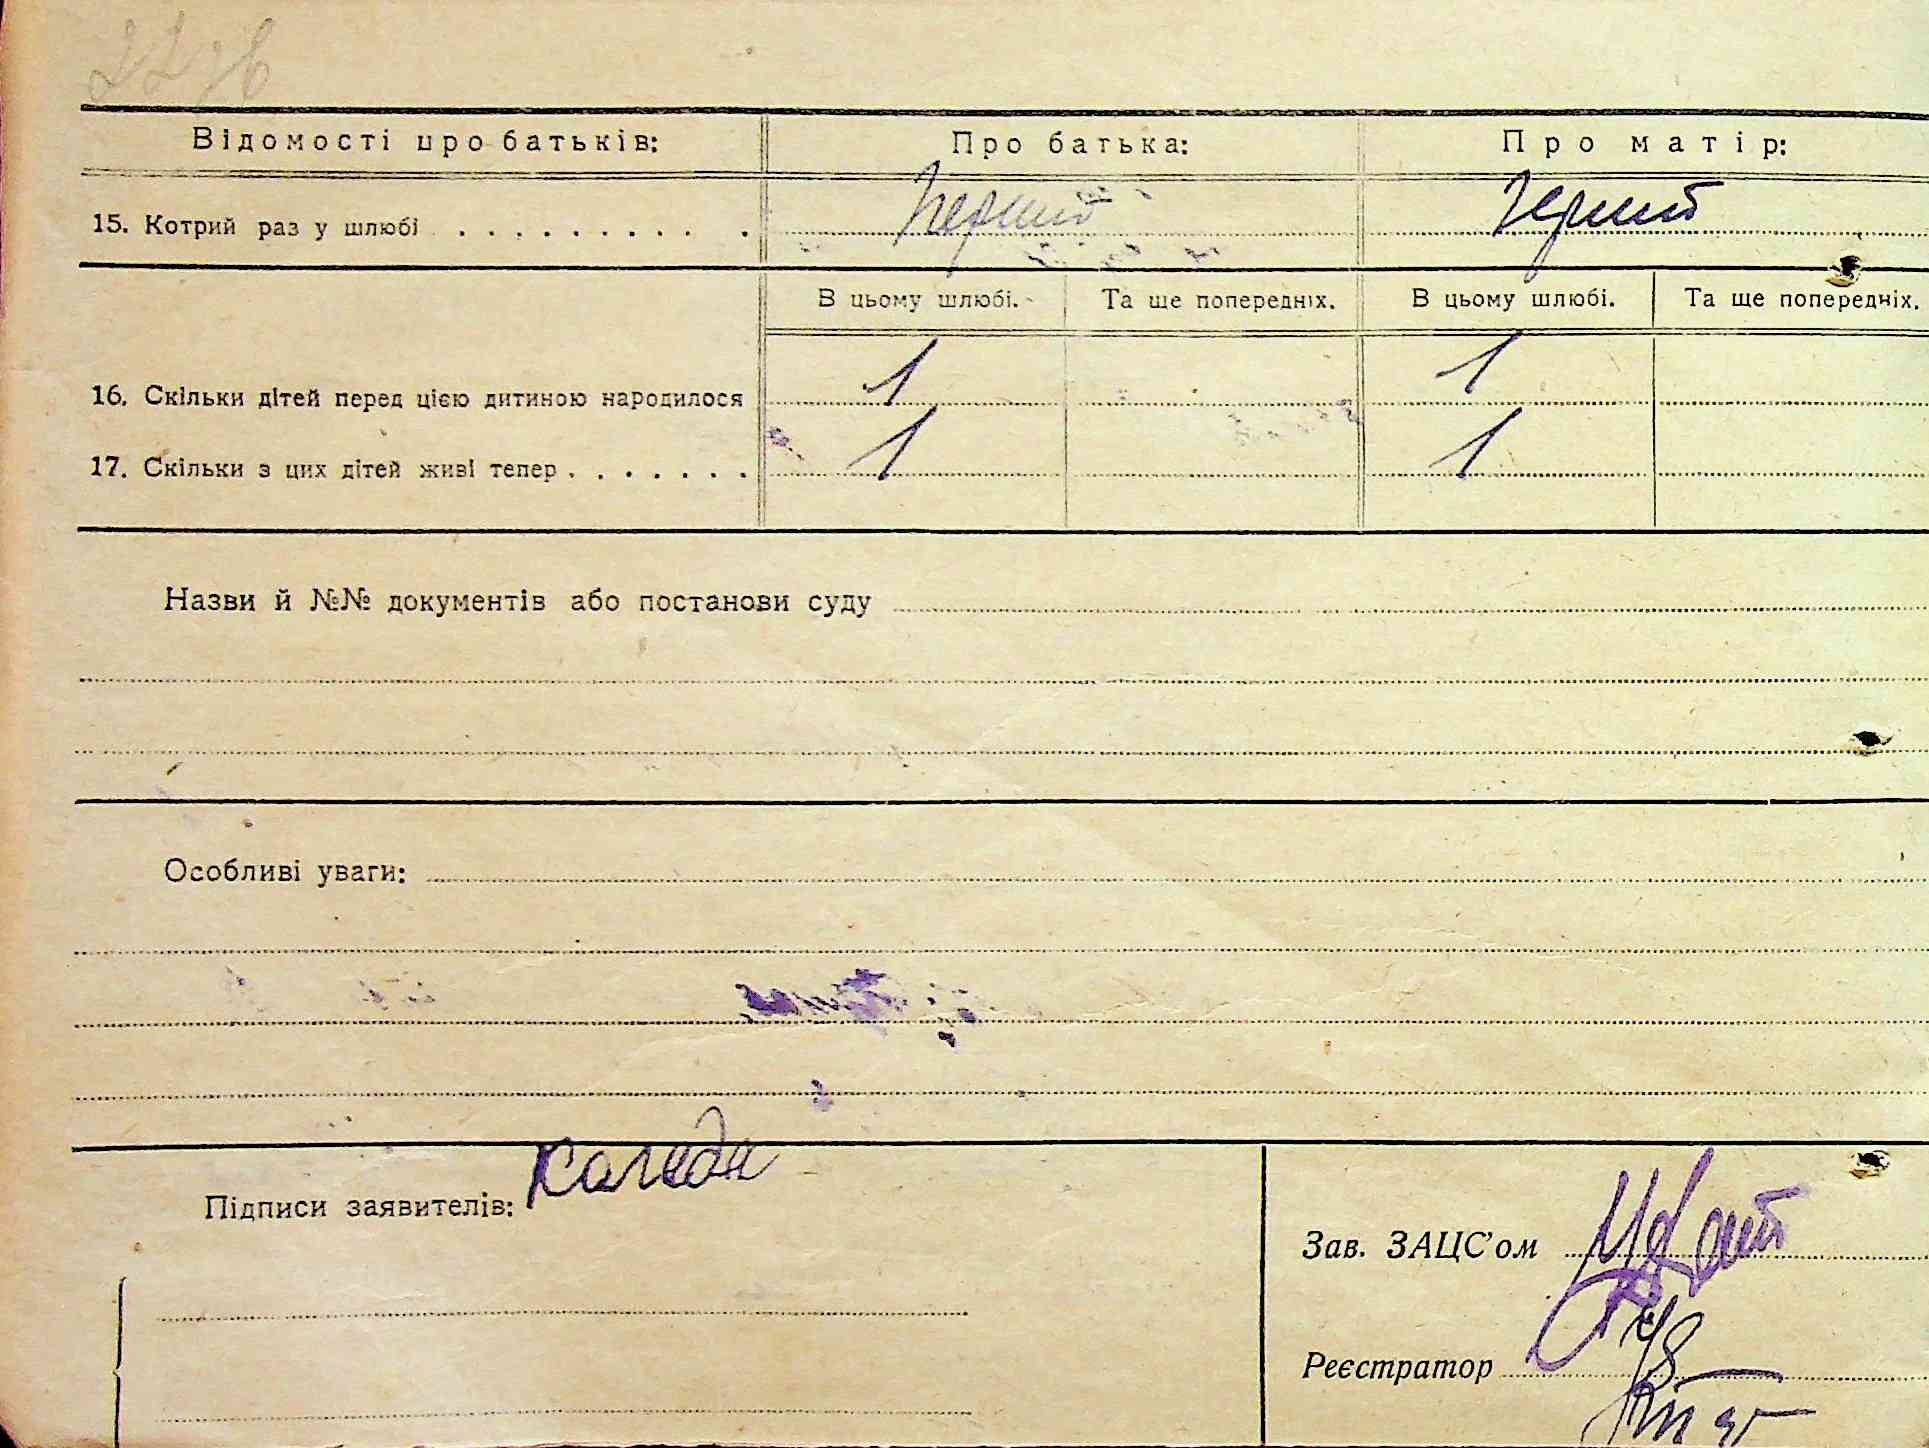 Відомості про батьків: Про батька: Про матір:
15. Котрий раз у шлюбі . . . . . . . . . . перший перший
В цьому шлюбі. Та ще попередніх. В цьому шлюбі. Та ще попередніх.
16. Скільки дітей перед цією дитиною народилося 1 1
17. Скільки з цих дітей живі тепер . . . . . . . 1 1
Назви й №№ документів або постанови суду
Особливі уваги:
Підписи заявителів:
Зав. ЗАЦС’ом
Реєстратор